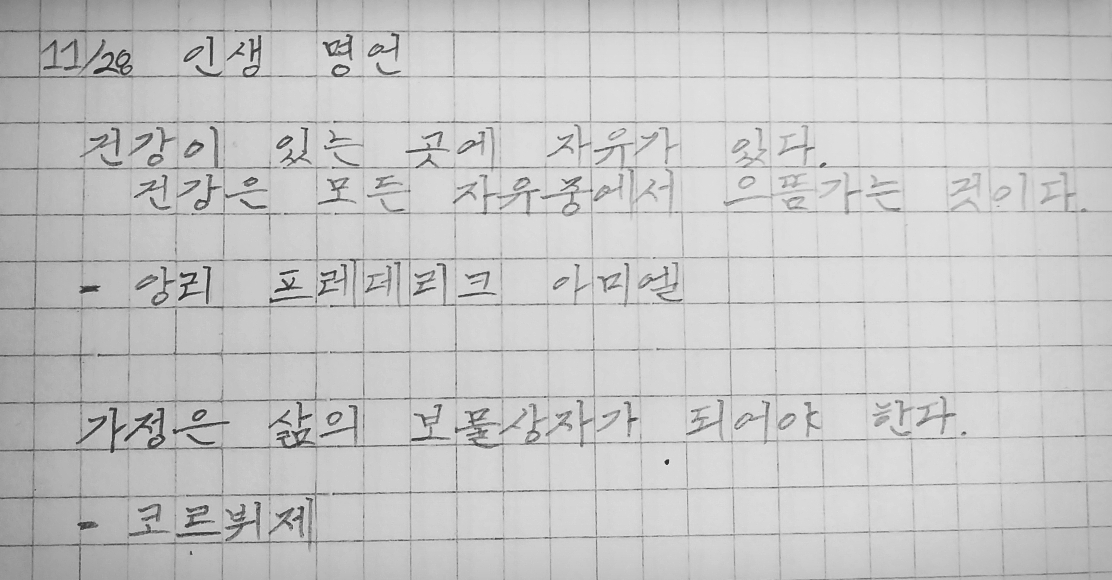 11/28 인생 명언
건강이 있는 곳에 자유가 있다.
건강은 모든 자유중에서 으뜸가는 것이다.
- 앙리 프레데리크 아미엘
가정은 삶의 보물상자가 되어야 한다.
- 코르뷔제